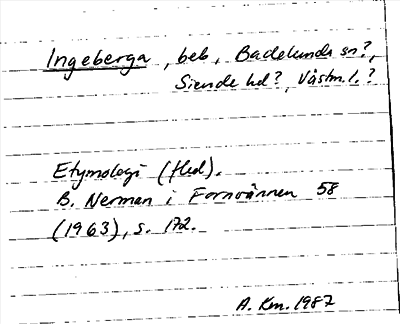 Ingeberga, beb., Badelunda sn?,
Siende hd?, Västm.l.?
Etymologi (fled).
B. Nerman i Fornvännen 58
(1963), s. 172.
A. Km. 1987